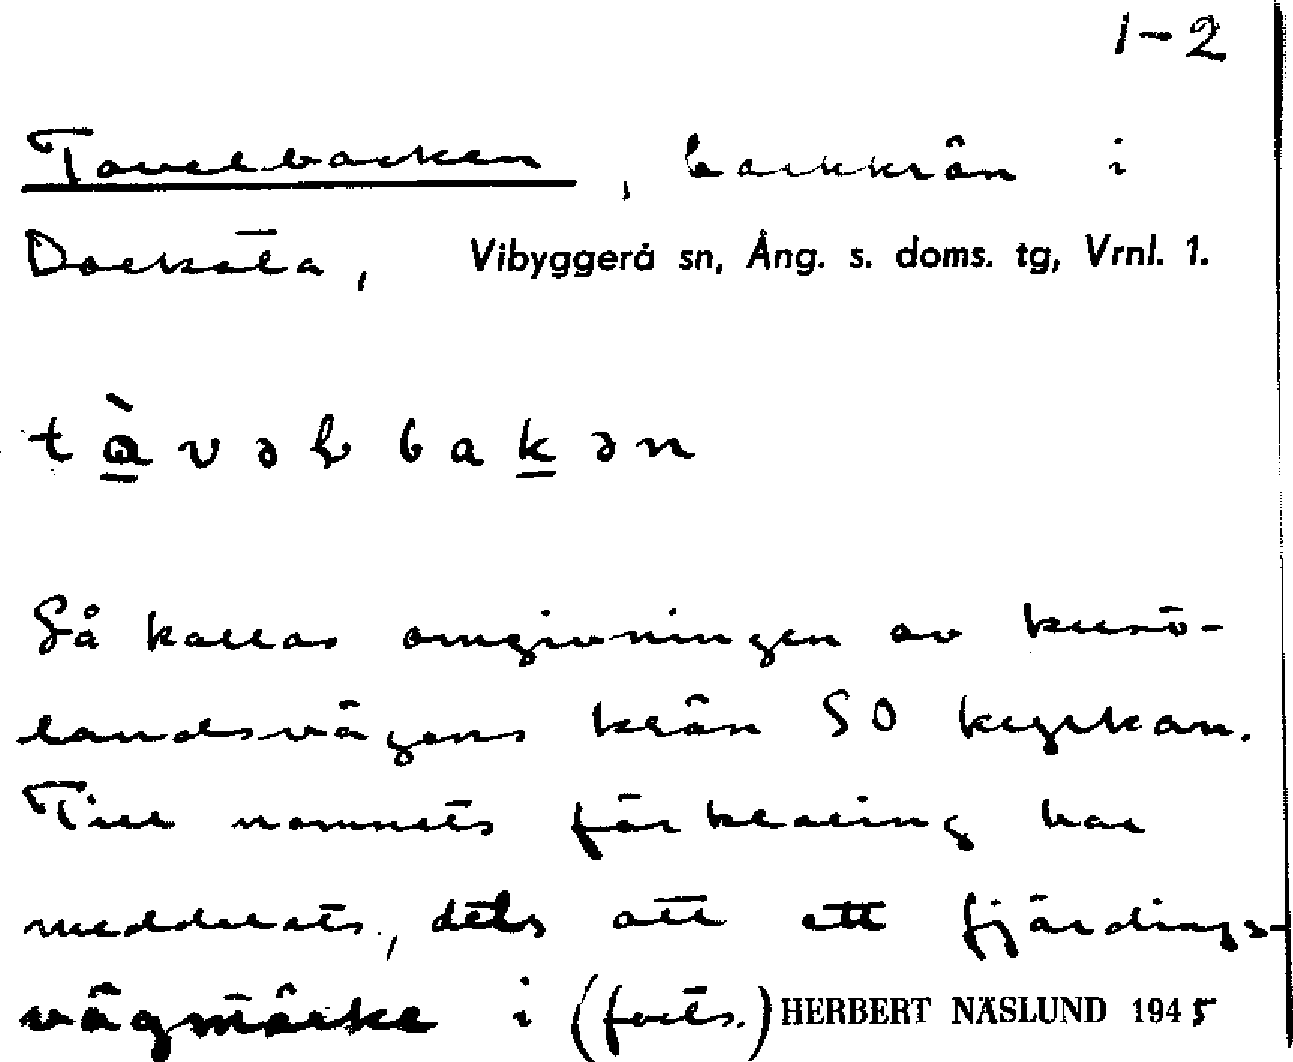 1-2
Tavelbacken, backkrön i
Docksta, Vibyggerå sn, Ång. s. doms. tg, Vrnl. 1.
tàvəɫbakən
Så kallas omgivningen av
landsvägens krön SO kyrkan.
Till namnets förklaring har
meddelats, dels att ett fjärdings-
vägmärke i (forts.) HERBERT NÄSLUND 1945